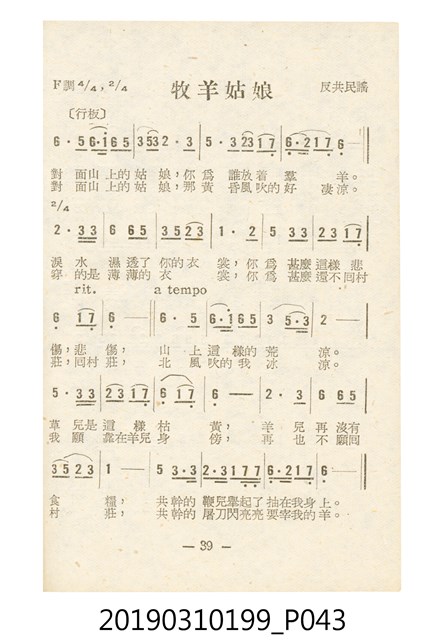 F調4/4,2/4 牧羊姑娘 反共民謠
〔行板〕
6·56·165 35322·3 5·32317 6·2176—
對面山上的姑娘,你為誰放着羣羊。
對面山上的姑娘,那黃昏風吹的好淒涼。
2/4
2·33 6665 3523 1·2 5533 2317
淚水濕透了你的衣裳,你為甚麼這樣悲
穿的是薄薄的衣裳,你為甚麼還不回村
rit. a tempo
6 17 6— 6·5 6·165 35·3 2—
傷,悲傷,山上這樣的荒涼。
莊,回村莊,北風吹的我冰涼。
5·33 2317 617 6— 2·3 665
草兒是這樣枯黃,羊兒再沒有
我願靠在羊兒身傍,再也不願回
3523 1— 53·3 2·3177 6·217 6—
食糧,共幹的鞭兒舉起了抽在我身上。
村莊,共幹的屠刀閃亮亮要宰我的羊。
— 39 —
20190310199_P043